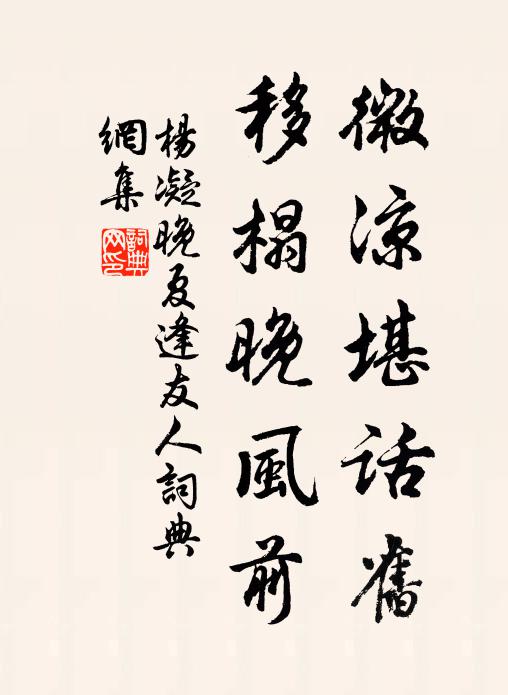 微涼堪話舊
移榻晚風前
楊凝晚夏逢友人詞典
網集
詞典網印